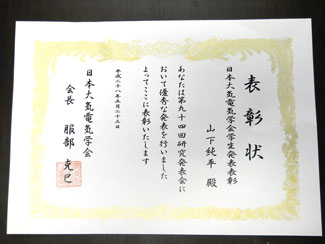 表彰状
日本大気電気学会学生発表表彰
山下純平 殿
あなたは第九十四回研究発表会に
おいて優秀な発表を行いました
よってここに表彰いたします
平成二十八年五月二十三日
日本大気電気学会
会長 服部 克巳